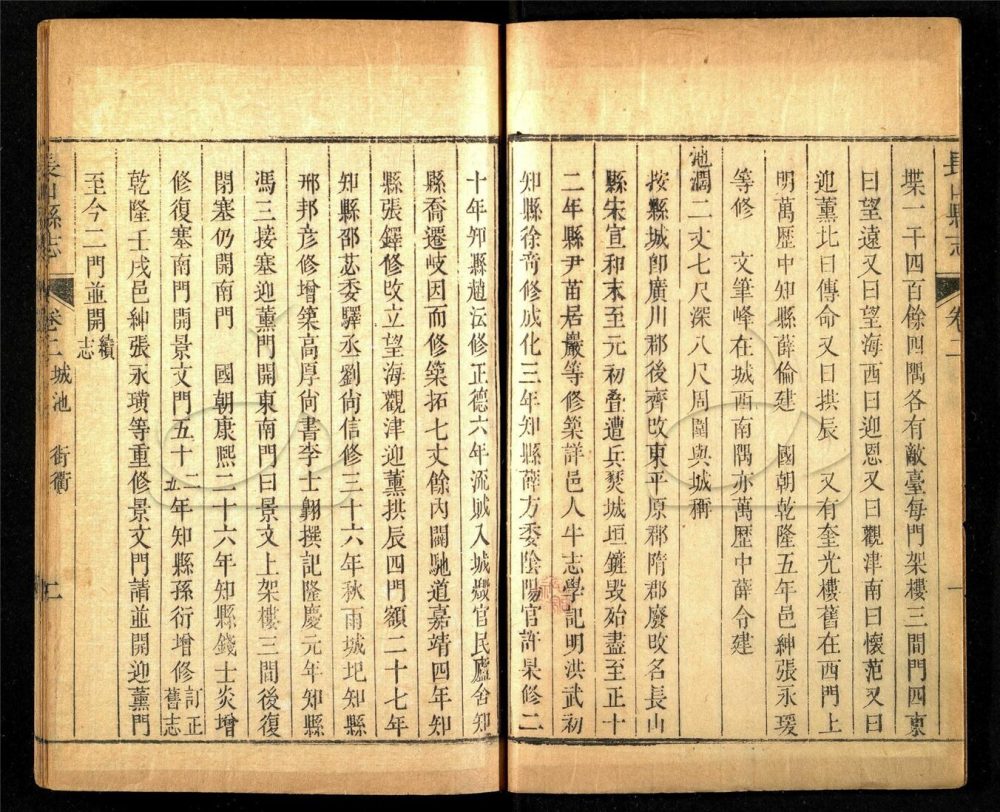 長山縣志 卷二 一
堞一千四百餘四隅各有敵臺每門架樓三間門四東
曰望遠又曰望海西曰迎恩又曰觀津南曰懷范又曰
迎薰北曰傳命又曰拱辰 又有奎光樓舊在西門上
明萬歷中知縣薛倫建 國朝乾隆五年邑紳張永瑗
等修 文筆峰在城西南隅亦萬歷中薛令建
池濶二丈七尺深八尺周圍與城稱
按縣城卽廣川郡後齊改東平原郡隋郡廢改名長山
縣宋宣和末至元初疊遭兵燹城垣鏟毀始盡至正十
二年縣尹苗居巖等修築詳邑人牛志學記明洪武初
知縣徐奇修成化三年知縣薛方委陰陽官許杲修二
十年知縣趙沄修正德六年流賊入城燬官民廬舍知
縣喬遷岐因而修築拓七丈餘內闢馳道嘉靖四年知
縣張鐸修改立望海觀津迎薰拱辰四門額二十七年
知縣邵苾委驛丞劉尙信修三十六年秋雨城圮知縣
邢邦彥修增築高厚尙書李士翺撰記隆慶元年知縣
馮三接塞迎薰門開東南門曰景文上架樓三間後復
閉塞仍開南門 國朝康熙二十六年知縣錢士炎增
修復塞南門開景文門五十一二五年知縣孫衍增修訂正舊志
乾隆壬戌邑紳張永璜等重修景文門請並開迎薰門
至今二門並開續志
長山縣志 卷二 城池 街衢 二